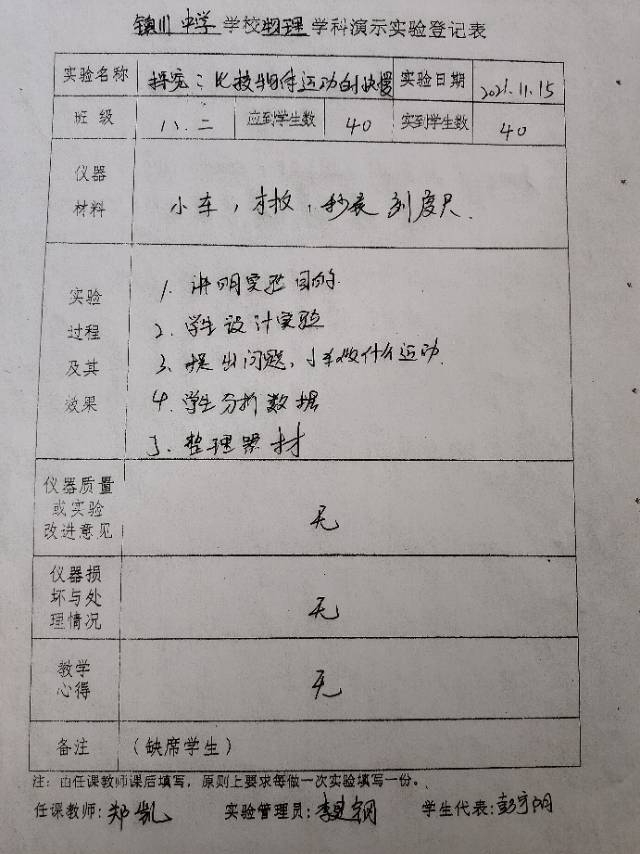 镇川中学学校物理学科演示实验登记表
实验名称 探究:比较物体运动的快慢 实验日期 2021.11.15
班级 八.二 应到学生数 40 实到学生数 40
仪器
材料
小车,木板,秒表 刻度尺.
实验
过程
及其
效果
1. 讲明实验目的
2. 学生设计实验
3. 提出问题,小车做什么运动.
4. 学生分析数据
5. 整理器材
仪器质量
或实验
改进意见
无
仪器损
坏与处
理情况
无
教学
心得
无
备注 (缺席学生)
注:由任课教师课后填写,原则上要求每做一次实验填写一份。
任课教师:郑凯 实验管理员:李 钢 学生代表:彭宇阳